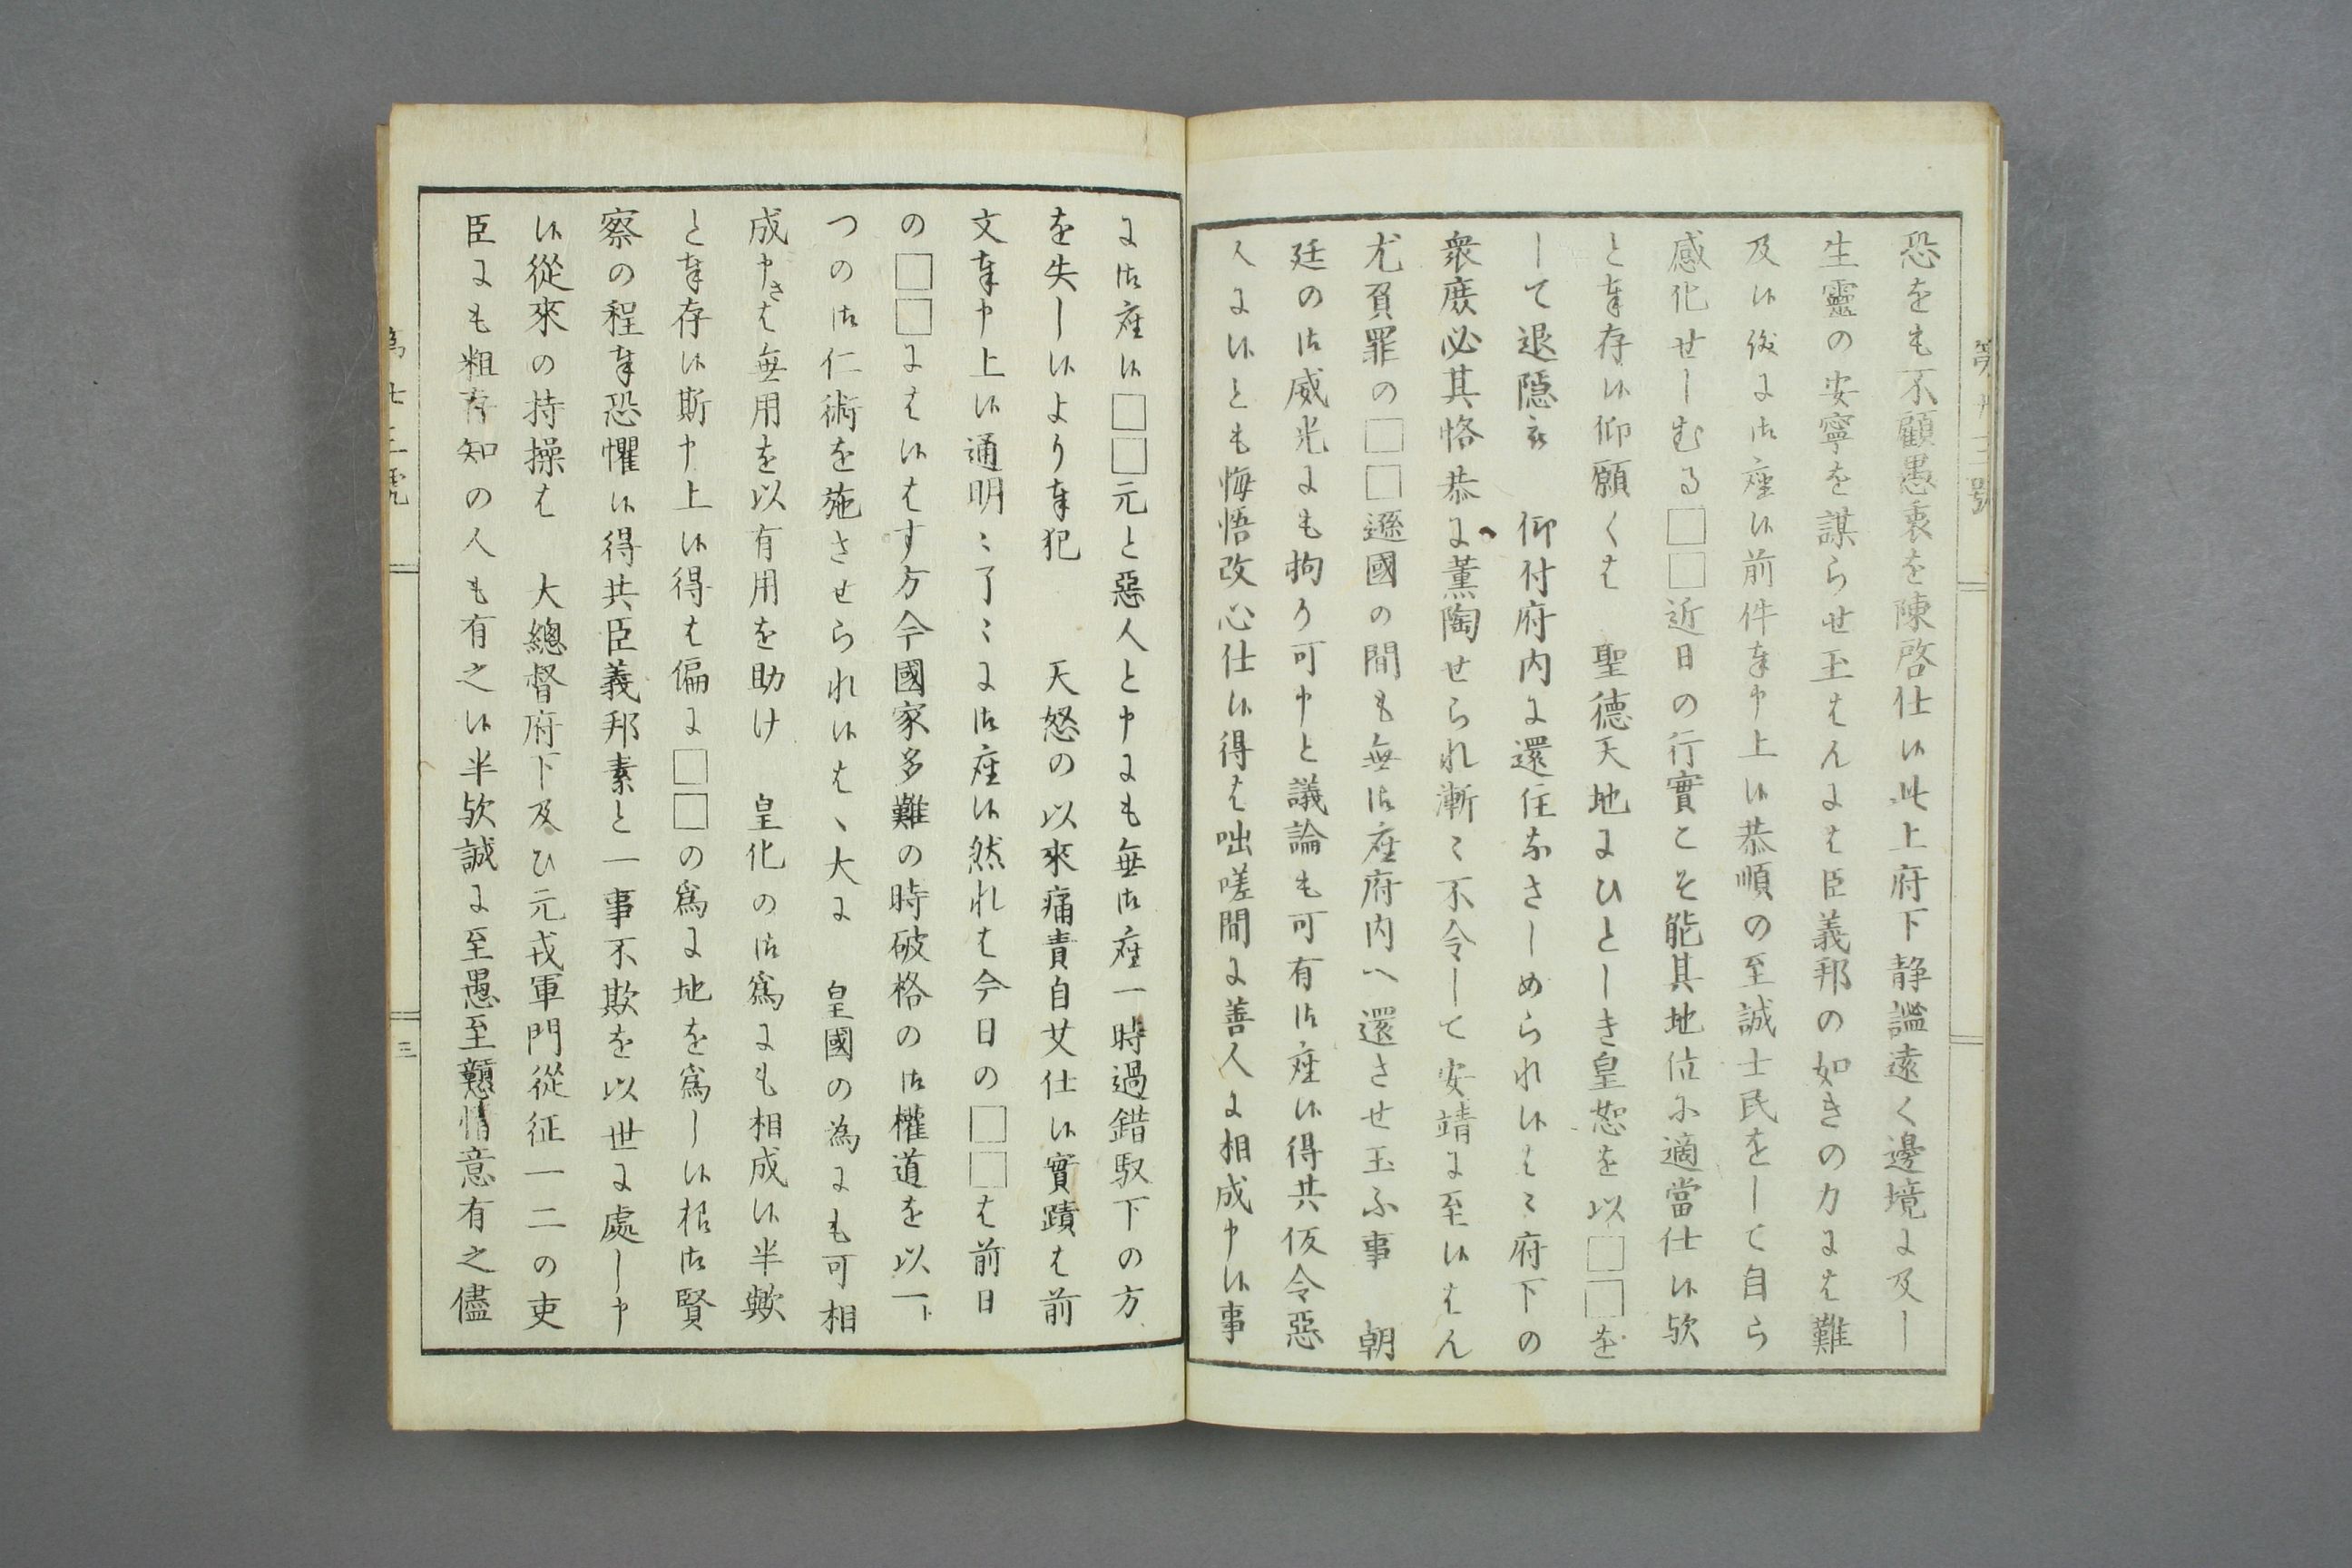 恐をも不顧愚衷を陳啓仕候此上府下静謐遠く邊境に及し
生靈の安寧を謀らせ玉はんには臣義邦の如きの力には難
及候後に御座候前件奉申上候恭順の至誠士民をして自ら
感化せしむる□□近日の行實こそ能其地位に適當仕候歟
と奉存候仰願くは　聖德天地にひとしき皇恕を以□□を
して退隱被　仰付府内に還住なさしめられ候はゝ府下の
衆庶必其恪恭に薫陶せられ漸々不令して安靖に至候はん
尤負罪の□□遜國の間も無御座府内へ還させ玉ふ事　朝
廷の御威光にも拘り可申と議論も可有御座候得共仮令惡
人に候とも悔悟改心仕候得は咄嗟間に善人に相成申候事
に御座候□□元と惡人と申にも無御座一時過錯馭下の方
を失し候より奉犯　天怒の以來痛責自艾仕候實蹟は前
文奉申上候通明々了々に御座候然れは今日の□□は前日
の□□には候はす方今國家多難の時破格の御權道を以一ト
つの御仁術を施させられ候はゝ大に　皇國の為にも可相
成申さは無用を以有用を助け　皇化の御爲にも相成候半歟
と奉存候斯申上候得は偏に□□の爲に地を爲し候樣御賢
察の程奉恐懼候得共臣義邦素と一事不欺を以世に處し申
候從來の持操は　大總督府下及ひ元戎軍門從征一二の吏
臣にも粗存知の人も有之候半歟誠に至愚至戇情意有之儘
三